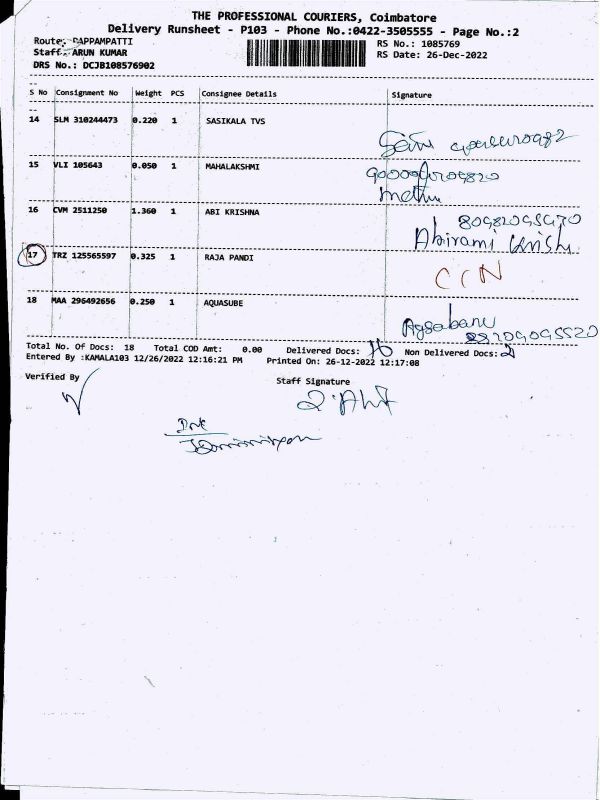 THE PROFESSIONAL COURIERS, Coimbatore
Delivery Runsheet - P103 - Phone No.:0422-3505555 - Page No.:2
Route: PAPPAMPATTI
RS No.: 1085769
Staff: ARUN KUMAR
RS Date: 26-Dec-2022
DRS No.: DCJB108576902
S No Consignment No Weight PCS Consignee Details Signature
14 SLM 310244473 0.220 1 SASIKALA TVS
15 VLI 105643 0.050 1 MAHALAKSHMI
16 CVM 2511250 1.360 1 ABI KRISHNA
Abirami
17 TRZ 125565597 0.325 1 RAJA PANDI
18 MAA 296492656 0.250 1 AQUASUBE
Total No. Of Docs: 18 Total COD Amt: 0.00 Delivered Docs: 16 Non Delivered Docs: 2
Entered By :KAMALA103 12/26/2022 12:16:21 PM Printed On: 26-12-2022 12:17:08
Verified By
Staff Signature